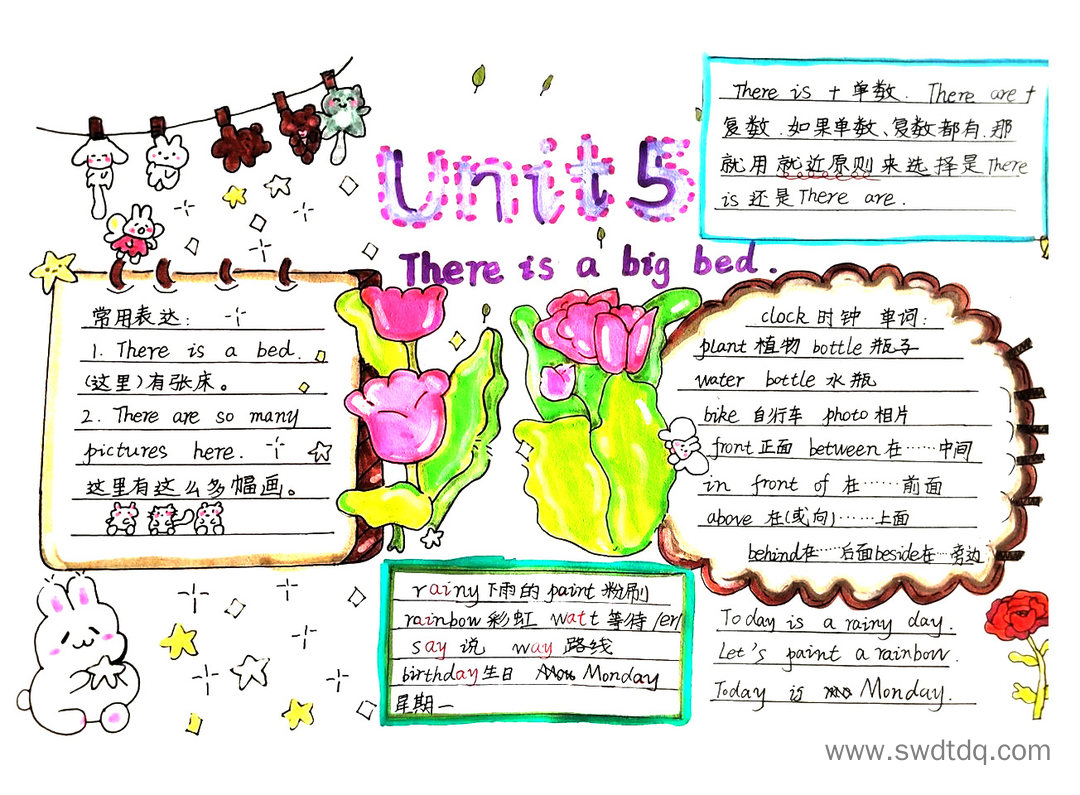 Unit 5
There is a big bed.
There is + 单数. There are +
复数.如果单数、复数都有,那
就用就近原则来选择是There
is 还是There are.
常用表达:
1. There is a bed.
(这里)有张床。
2. There are so many
pictures here.
这里有这么多幅画。
clock 时钟 单词:
plant 植物 bottle 瓶子
water bottle 水瓶
bike 自行车 photo 相片
front 正面 between 在……中间
in front of 在……前面
above 在(或向)……上面
behind在……后面beside在…旁边
rainy 下雨的 paint 粉刷
rainbow 彩虹 watt 等待 /eɪ/
say 说 way 路线
birthday生日 Monday
星期一
Today is a rainy day.
Let's paint a rainbow.
Today is Monday.
www.swdtdq.com